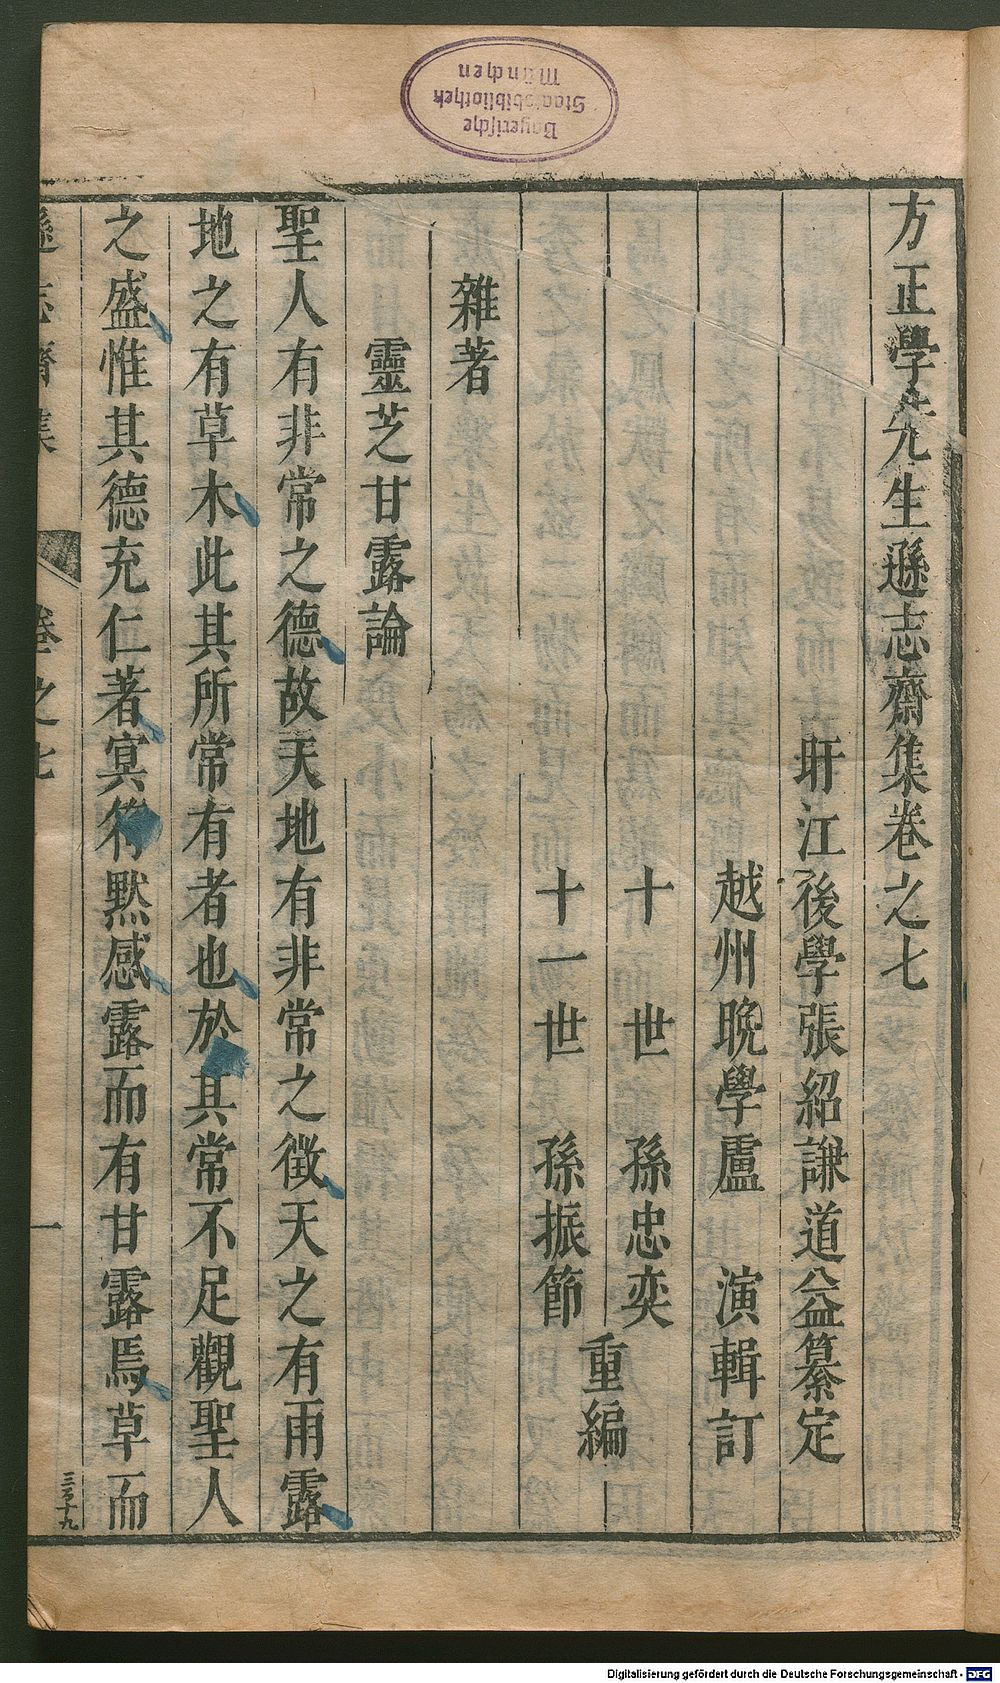 方正學先生遜志齋集卷之七
盱江後學張紹謙道益纂定
越州晚學盧演輯訂
十世孫忠奕
十一世孫振節
重編
雜著
靈芝甘露論
聖人有非常之德故天地有非常之徵天之有雨露
地之有草木此其所常有者也於其常不足觀聖人
之盛惟其德充仁著冥符默感露而有甘露焉草而
遜志齋集
卷之七
一
Bayerische
Staatsbibliothek
München
Digitalisierung gefördert durch die Deutsche Forschungsgemeinschaft - DFG